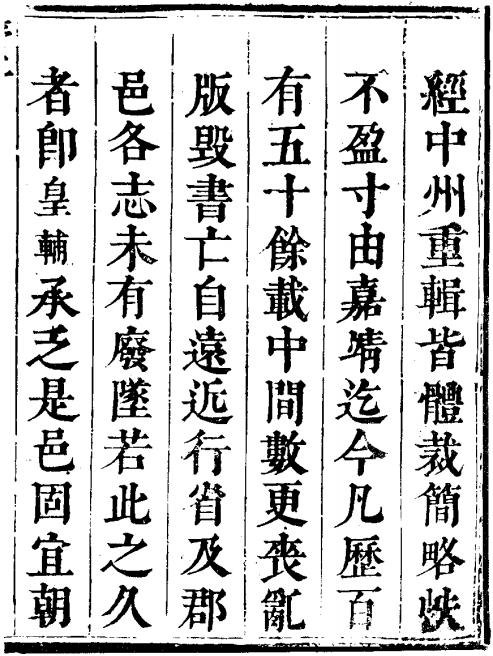 經中州重輯皆體裁簡略帙
不盈寸由嘉靖迄今凡歷百
有五十餘載中間數更喪亂
版毀書亡自遠近行省及郡
邑各志未有廢墜若此之久
者卽皇輔承乏是邑固宜朝